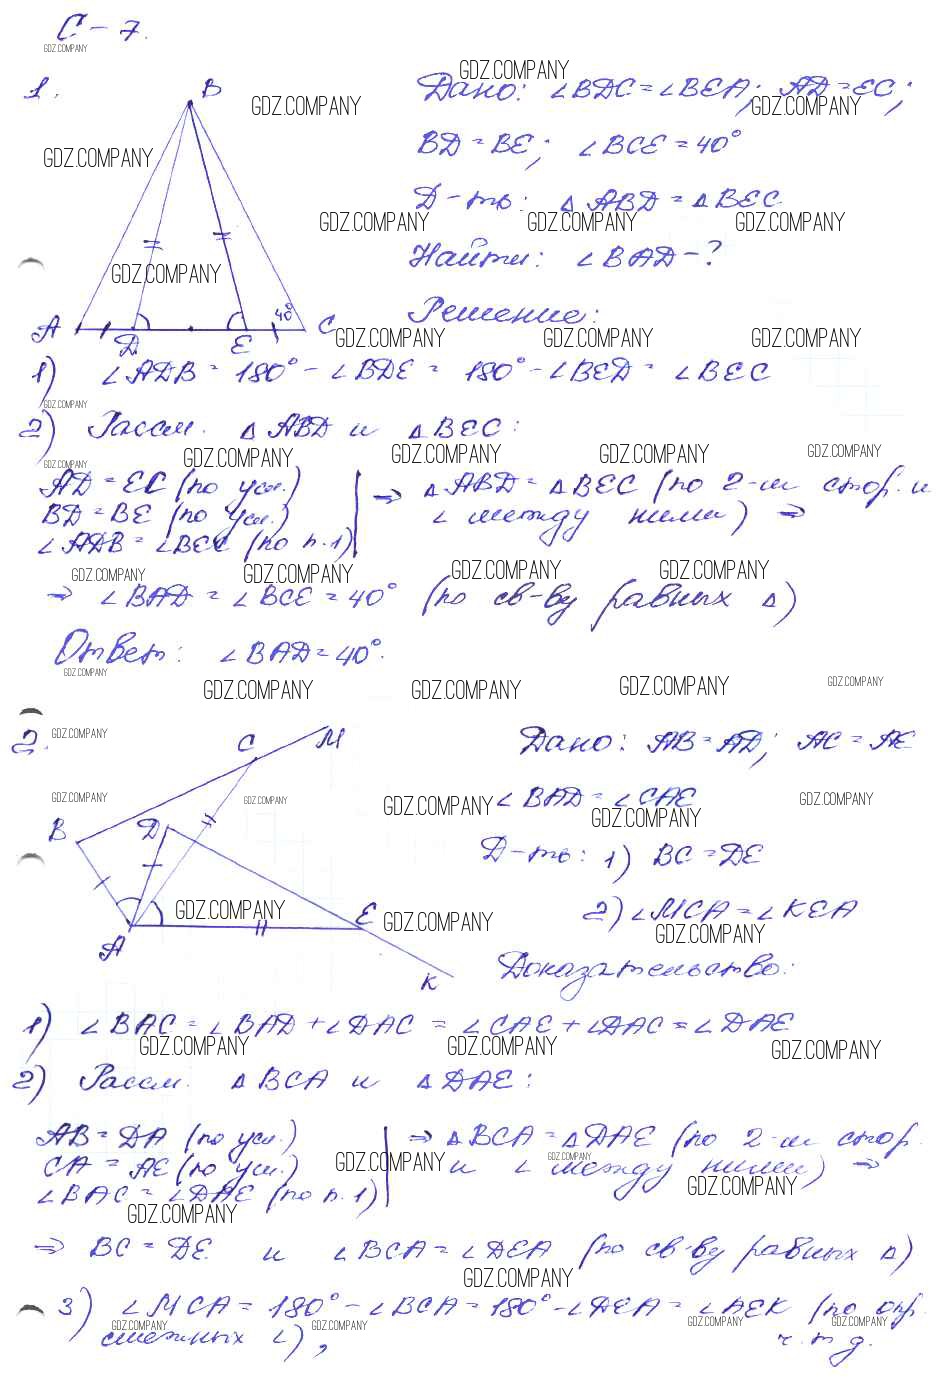 С-7.
1.
B
A
D
E
C
40°
Дано: ∠BDC=∠BEA; AD=EC;
BD=BE; ∠BCE=40°
Д-ть: △ABD=△BEC
Найти: ∠BAD-?
Решение:
1) ∠ADB=180°-∠BDE=180°-∠BED=∠BEC
2) Рассм. △ABD и △BEC:
AD=EC (по усл.)
BD=BE (по усл.)
∠ADB=∠BEC (по п.1)
⇒ △ABD=△BEC (по 2-м стор. и
∠ между ними) ⇒
⇒ ∠BAD=∠BCE=40° (по св-ву равных △)
Ответ: ∠BAD=40°.
2.
B
C
M
D
A
E
K
Дано: AB=AD; AC=AE
∠BAD=∠CAE
Д-ть: 1) BC=DE
2) ∠MCA=∠KEA
Доказательство:
1) ∠BAC=∠BAD+∠DAC=∠CAE+∠DAC=∠DAE
2) Рассм. △BCA и △DAE:
AB=DA (по усл.)
CA=AE (по усл.)
∠BAC=∠DAE (по п.1)
⇒ △BCA=△DAE (по 2-м стор.
и ∠ между ними) ⇒
⇒ BC=DE и ∠BCA=∠DEA (по св-ву равных △)
3) ∠MCA=180°-∠BCA=180°-∠DEA=∠AEK (по опр.
смежных ∠), ч.т.д.
GDZ.COMPANY